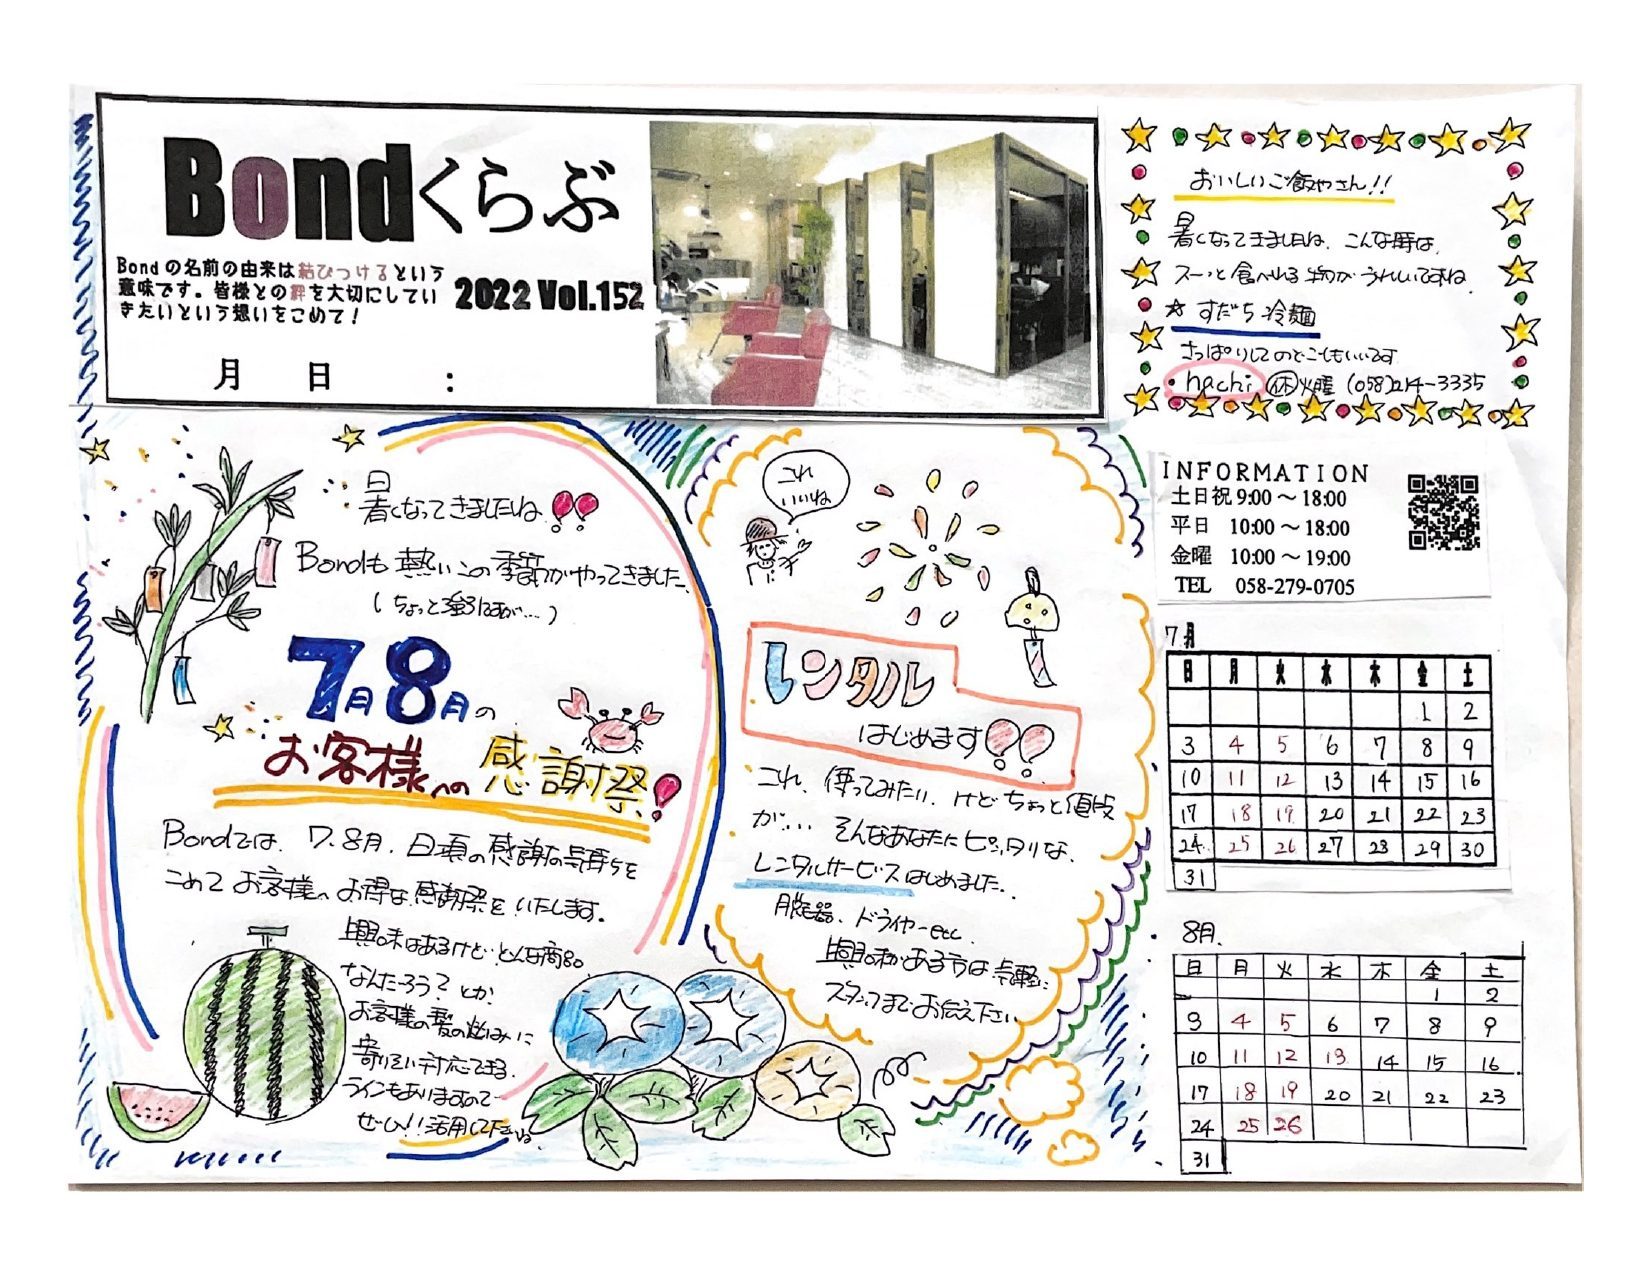 Bondくらぶ
Bondの名前の由来は結びつけるという
意味です。皆様との絆を大切にしてい
きたいという想いをこめて！
2022 Vol.152
月 日 :
おいしいご飯やさん!!
暑くなってきましたね、こんな時は、
スーッと食べれる物がうれしいですね
☆ すだち冷麺
さっぱりしてのどこしもいいです
・hachi ㊡火曜 (058)214-3335
暑くなってきましたね!!
Bondも熱いこの季節がやってきました
(ちょっと強引ですが...)
7月8月の
お客様への感謝祭!
Bondでは、7.8月、日頃の感謝の気持ちを
こめてお客様へお得な感謝祭をいたします。
興味はあるけどどんな商品
なんだろう？とか
お客様の髪の悩みに
寄りそい対応できる
ラインもありますので
ぜひ!!活用して下さいね
これ
いいね
レンタル
はじめます!!
これ、使ってみたい、けどちょっと値段
が... そんなあなたにピッタリな、
レンタルサービスはじめました.
脱毛器、ドライヤーetc
興味がある方は気軽に
スタッフまでお伝え下さい
INFORMATION
土日祝 9:00～18:00
平日 10:00～18:00
金曜 10:00～19:00
TEL 058-279-0705
7月
日 月 火 水 木 金 土
1 2
3 4 5 6 7 8 9
10 11 12 13 14 15 16
17 18 19 20 21 22 23
24 25 26 27 28 29 30
31
8月.
日 月 火 水 木 金 土
1 2
3 4 5 6 7 8 9
10 11 12 13 14 15 16
17 18 19 20 21 22 23
24 25 26
31